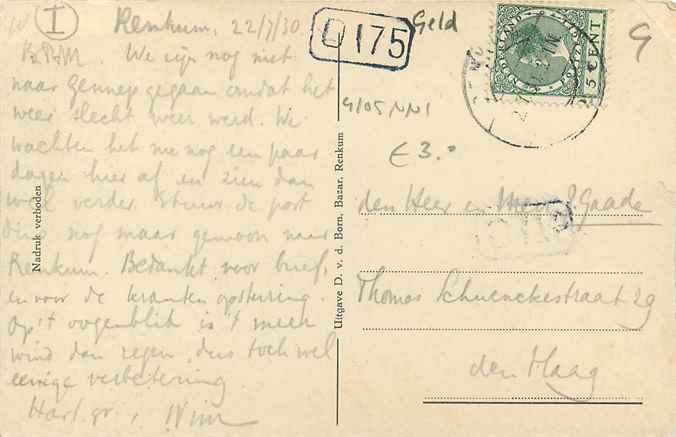 I
Renkum, 22/7/30
We zijn nog niet
naar Gennep gegaan omdat het
weer slecht weer werd. We
wachten het nu nog een paar
dagen hier af en zien dan
wel verder. Stuur de post
dus nog maar gewoon naar
Renkum. Bedankt voor brief,
en voor de kranten opsturing.
Op 't oogenblik is 't meer
wind dan regen, dus toch wel
eenige verbetering.
Hart. gr., Wim
Nadruk verboden
Uitgave D. v. d. Born, Bazar, Renkum
L 175
Geld
NEDERLAND
5 CENT
G
€ 3.=
den Heer en Mevr. Gaade
Thomas Schwenckestraat 29
den Haag